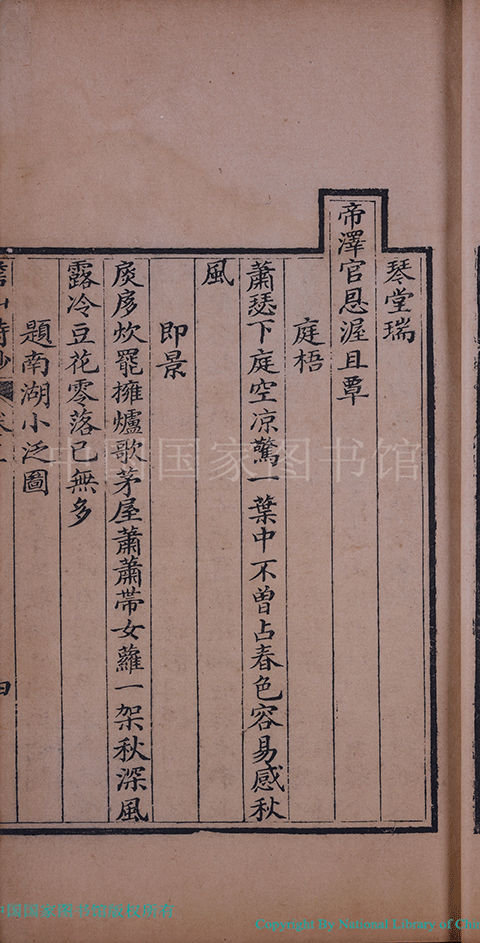 琴堂瑞
帝澤官恩渥且覃
庭梧
蕭瑟下庭空凉驚一葉中不曾占春色容易感秋
風
即景
扊扅炊罷擁爐歌茅屋蕭蕭帶女蘿一架秋深風
露冷豆花零落已無多
題南湖小泛圖
山詩鈔
中国国家图书馆
中国国家图书馆版权所有
Copyright By National Library of